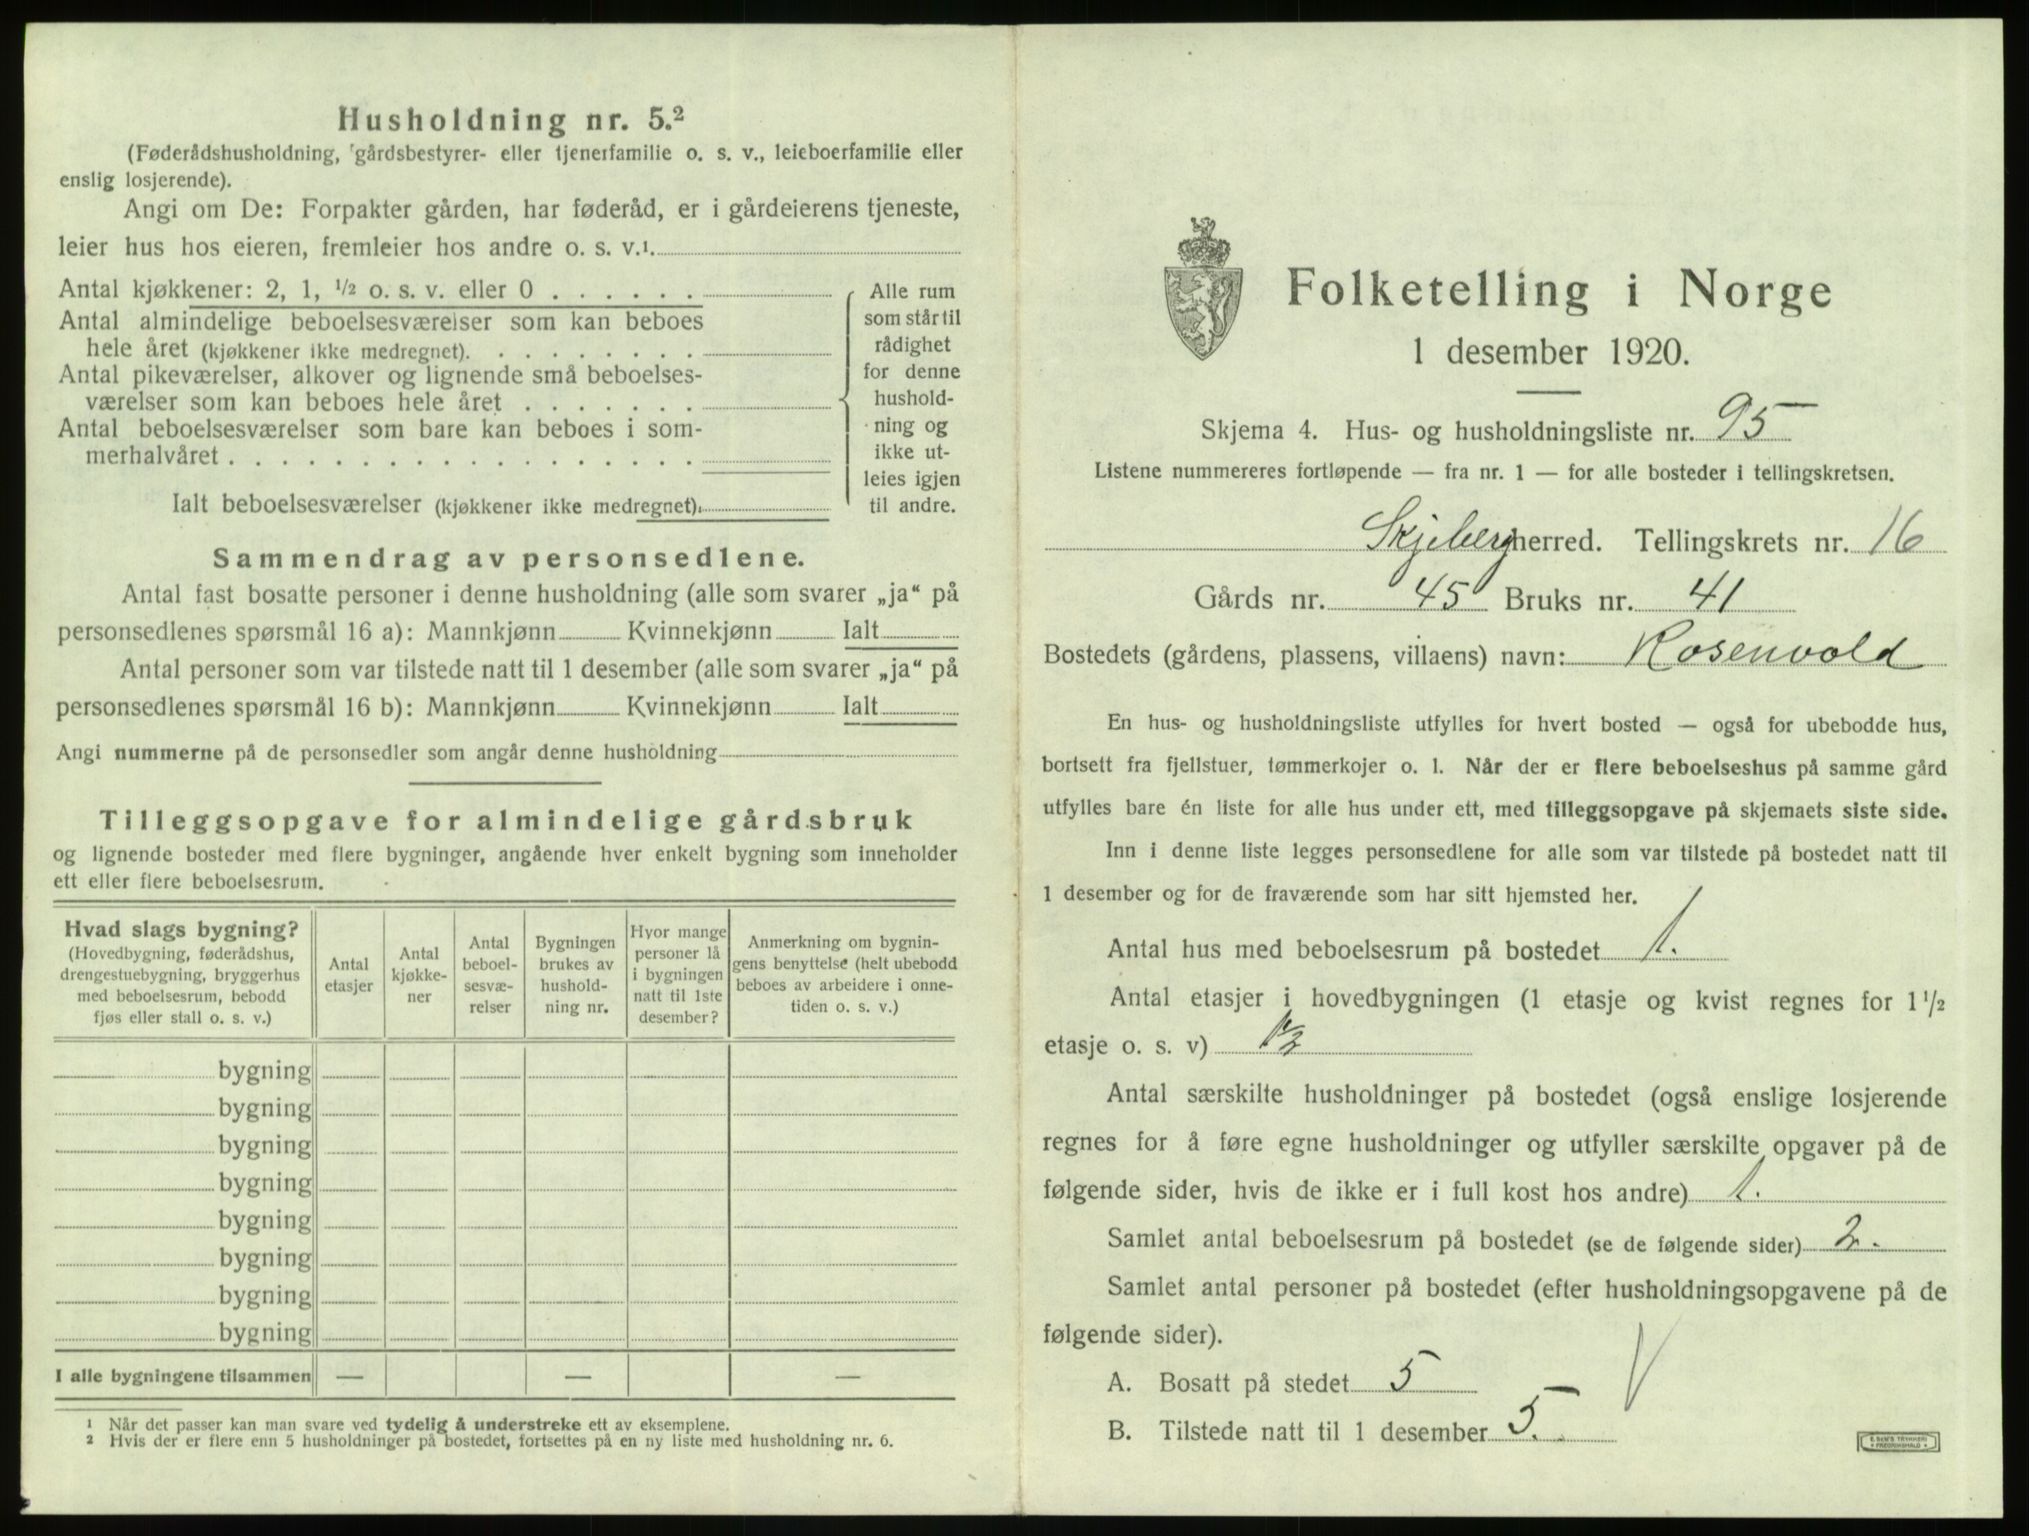 Husholdning nr. 5.²
(Føderådshusholdning, gårdsbestyrer- eller tjenerfamilie o. s. v., leieboerfamilie eller
enslig losjerende).
Angi om De: Forpakter gården, har føderåd, er i gårdeierens tjeneste,
leier hus hos eieren, fremleier hos andre o. s. v.¹
Antal kjøkkener: 2, 1, ½ o. s. v. eller 0 . . . . . .
Antal almindelige beboelsesværelser som kan beboes
hele året (kjøkkener ikke medregnet). . . . . . . . .
Antal pikeværelser, alkover og lignende små beboelses-
værelser som kan beboes hele året . . . . . . .
Antal beboelsesværelser som bare kan beboes i som-
merhalvåret . . . . . . . . . . . . . . . . . .
Ialt beboelsesværelser (kjøkkener ikke medregnet).
Alle rum
som står til
rådighet
for denne
hushold-
ning og
ikke ut-
leies igjen
til andre.
Sammendrag av personsedlene.
Antal fast bosatte personer i denne husholdning (alle som svarer „ja“ på
personsedlenes spørsmål 16 a): Mannkjønn Kvinnekjønn Ialt
Antal personer som var tilstede natt til 1 desember (alle som svarer „ja“ på
personsedlenes spørsmål 16 b): Mannkjønn Kvinnekjønn Ialt
Angi nummerne på de personsedler som angår denne husholdning
Tilleggsopgave for almindelige gårdsbruk
og lignende bosteder med flere bygninger, angående hver enkelt bygning som inneholder
ett eller flere beboelsesrum.
Hvad slags bygning?
(Hovedbygning, føderådshus,
drengestuebygning, bryggerhus
med beboelsesrum, bebodd
fjøs eller stall o. s. v.)
Antal
etasjer
Antal
kjøkke-
ner
Antal
beboel-
sesvæ-
relser
Bygningen
brukes av
hushold-
ning nr.
Hvor mange
personer lå
i bygningen
natt til 1ste
desember?
Anmerkning om bygnin-
gens benyttelse (helt ubebodd
beboes av arbeidere i onne-
tiden o. s. v.)
bygning
bygning
bygning
bygning
bygning
bygning
bygning
bygning
I alle bygningene tilsammen — — —
¹ Når det passer kan man svare ved tydelig å understreke ett av eksemplene.
² Hvis der er flere enn 5 husholdninger på bostedet, fortsettes på en ny liste med husholdning nr. 6.
Folketelling i Norge
1 desember 1920.
Skjema 4. Hus- og husholdningsliste nr. 95
Listene nummereres fortløpende — fra nr. 1 — for alle bosteder i tellingskretsen.
Skjeberg herred. Tellingskrets nr. 16
Gårds nr. 45 Bruks nr. 41
Bostedets (gårdens, plassens, villaens) navn: Rosenvold
En hus- og husholdningsliste utfylles for hvert bosted — også for ubebodde hus,
bortsett fra fjellstuer, tømmerkojer o. l. Når der er flere beboelseshus på samme gård
utfylles bare én liste for alle hus under ett, med tilleggsopgave på skjemaets siste side.
Inn i denne liste legges personsedlene for alle som var tilstede på bostedet natt til
1 desember og for de fraværende som har sitt hjemsted her.
Antal hus med beboelsesrum på bostedet 1.
Antal etasjer i hovedbygningen (1 etasje og kvist regnes for 1½
etasje o. s. v) 1½
Antal særskilte husholdninger på bostedet (også enslige losjerende
regnes for å føre egne husholdninger og utfyller særskilte opgaver på de
følgende sider, hvis de ikke er i full kost hos andre) 1.
Samlet antal beboelsesrum på bostedet (se de følgende sider) 2.
Samlet antal personer på bostedet (efter husholdningsopgavene på de
følgende sider).
A. Bosatt på stedet 5
B. Tilstede natt til 1 desember 5.
E. SEM'S TRYKKERI
FREDRIKSHALD